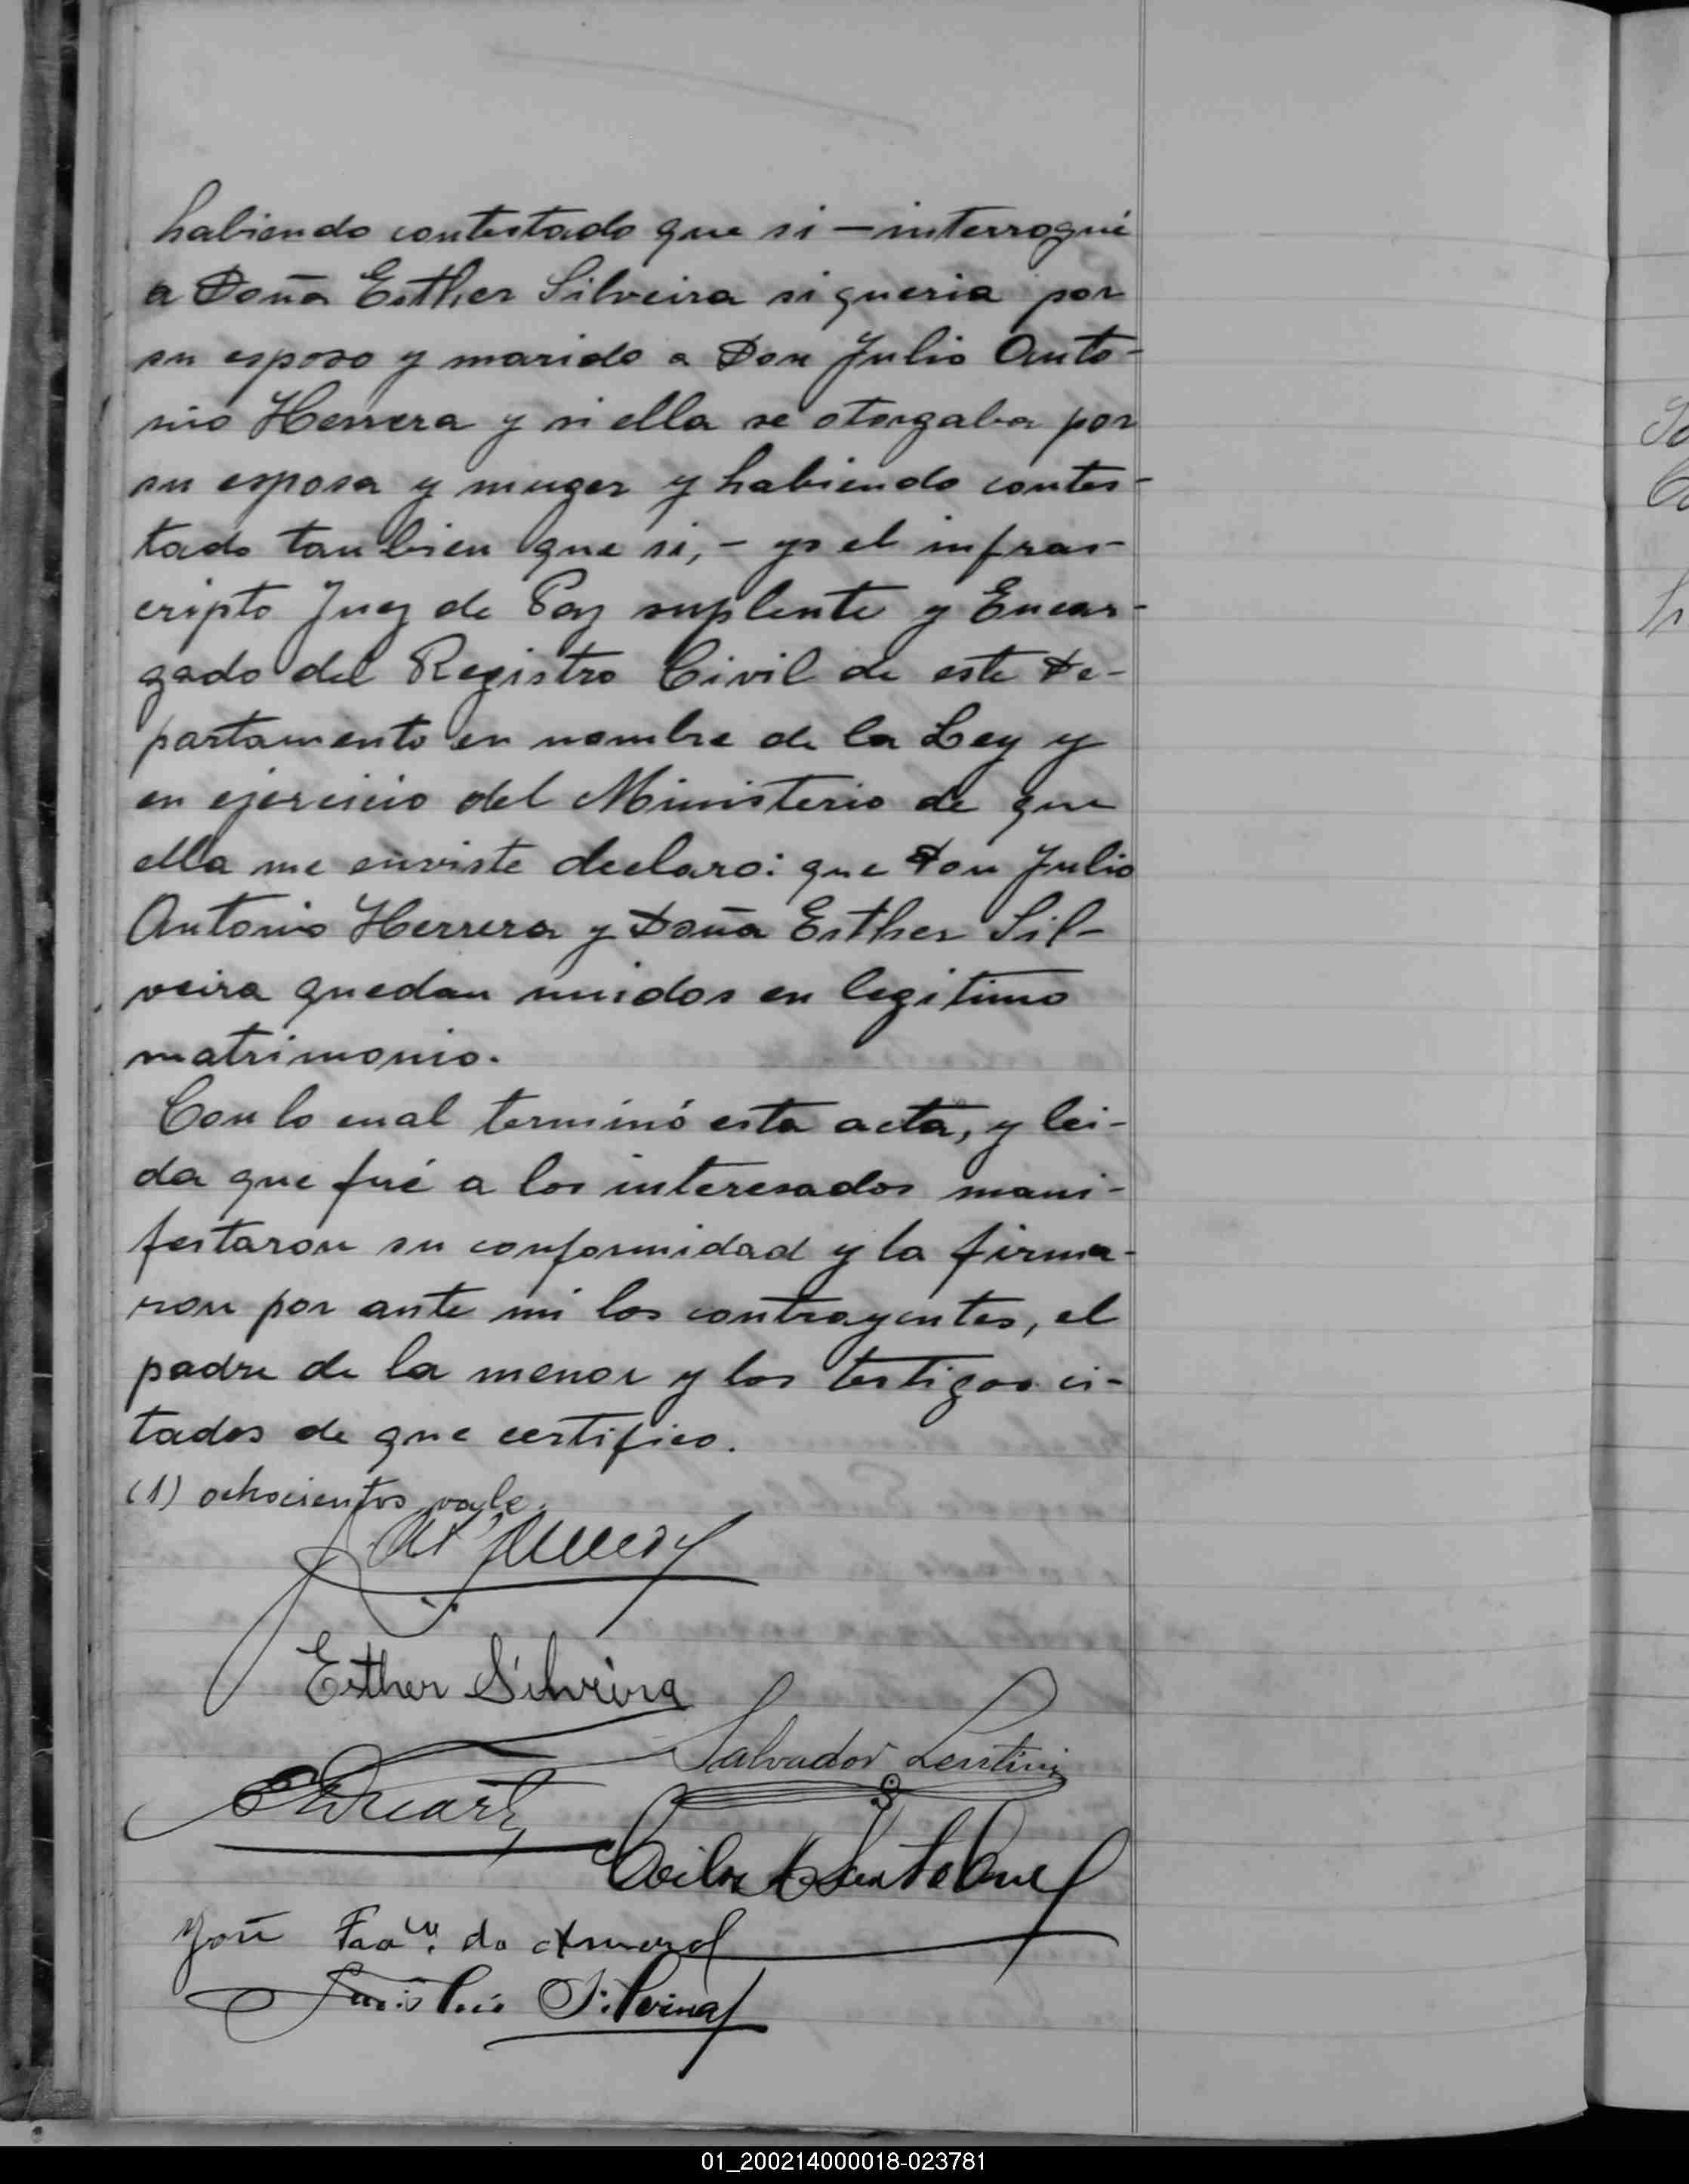 habiendo contestado que si – interrogué
a Doña Esther Silveira si queria por
su esposo y marido a Don Julio Anto-
nio Herrera y si ella se otorgaba por
su esposa y muger y habiendo contes-
tado tambien que si, – yo el infras-
cripto Juez de Paz suplente y Encar-
gado del Registro Civil de este De-
partamento en nombre de la Ley y
en ejercicio del Ministerio de que
ella me enviste declaro: que Don Julio
Antonio Herrera y Doña Esther Sil-
veira quedan unidos en legitimo
matrimonio.
Con lo cual terminó esta acta, y lei-
da que fué a los interesados mani-
festaron su conformidad y la firma-
ron por ante mi los contrayentes, el
padre de la menor y los testigos ci-
tados de que certifico.
(1) ochocientos vale.
Esther Silveira
Salvador Lentini
Silveira
01_200214000018-023781